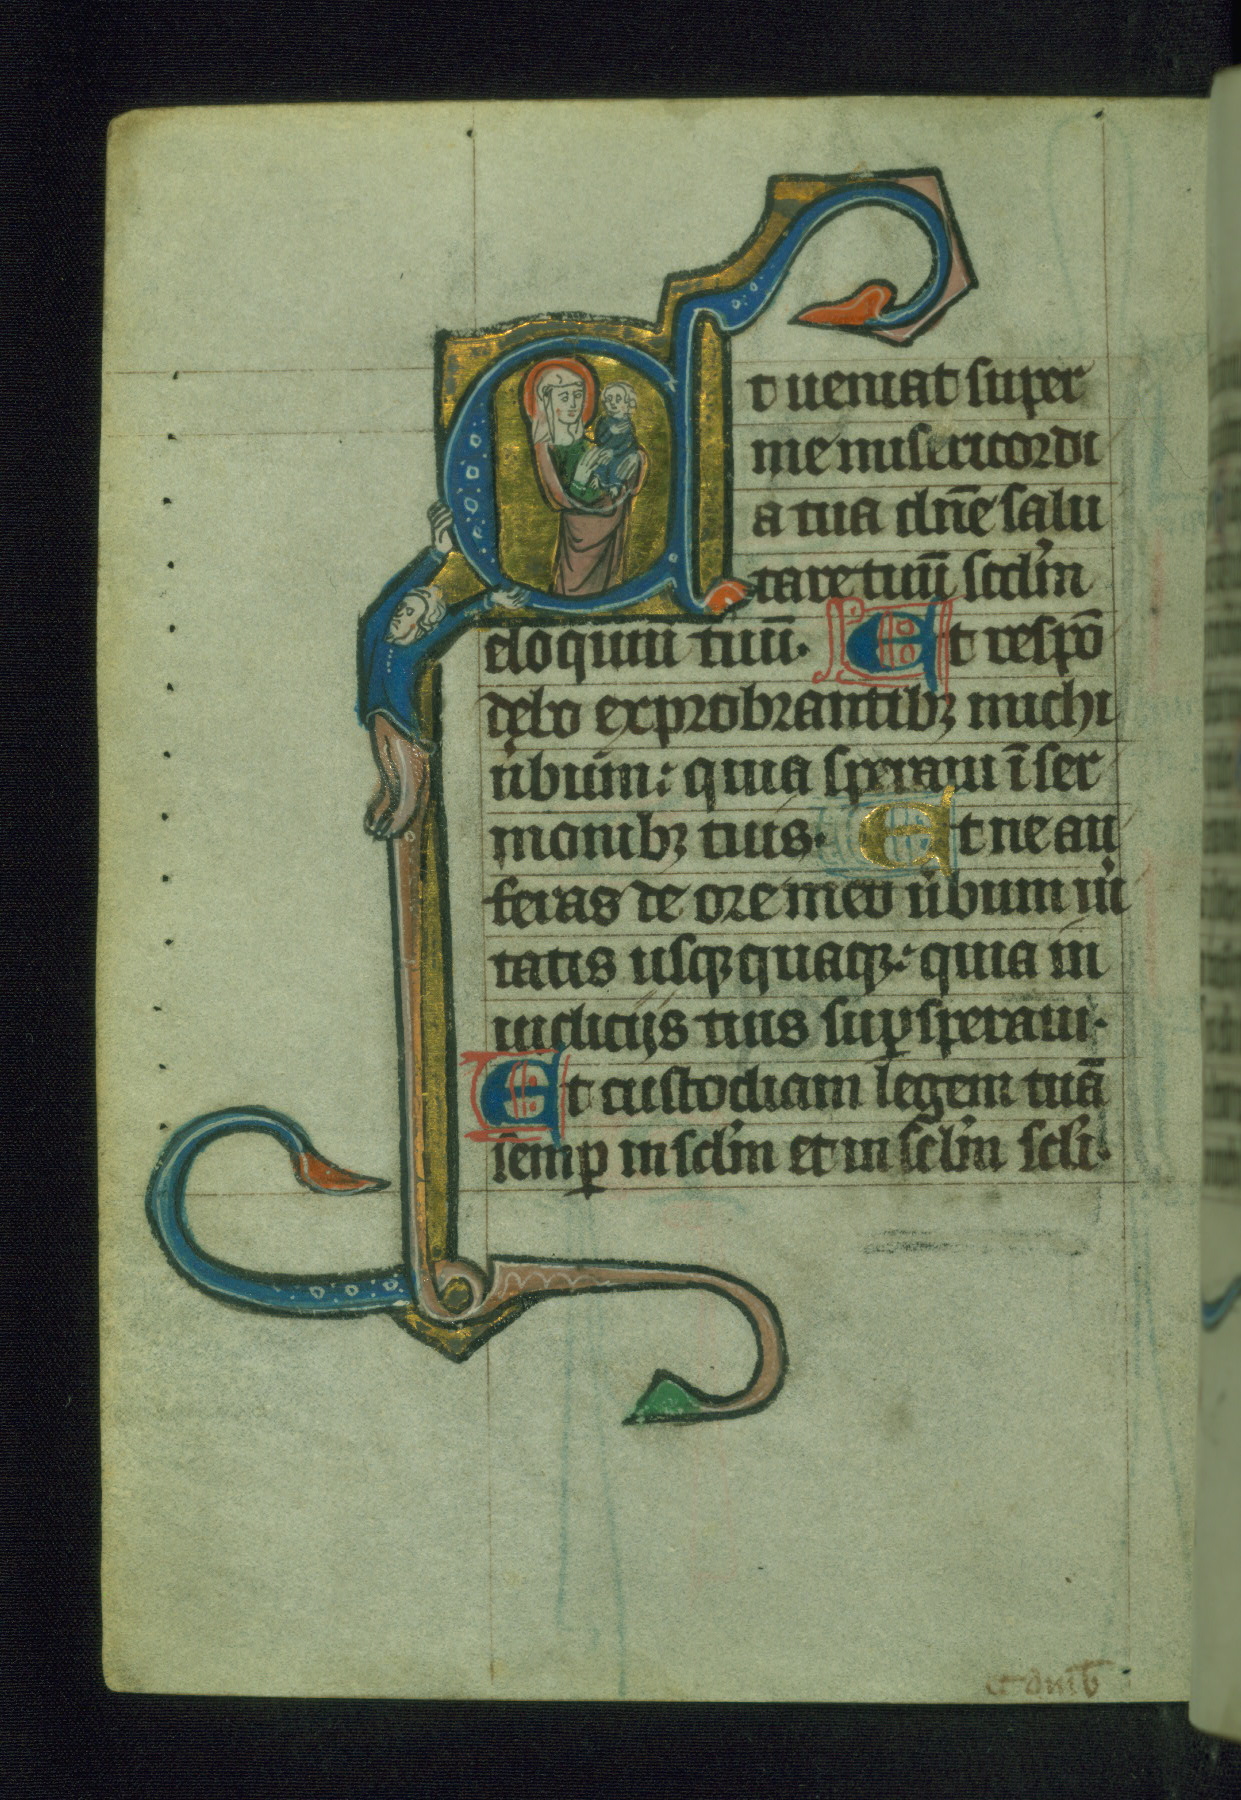 Et ueniat super
me misericordi
a tua dn̄e salu
tare tuū scdm̄
eloquiū tuū. Et respō
debo exprobrantibꝫ michi
ụ̉bum: quia speraui ī ser
monibꝫ tuis. Et ne au
feras de ore meo u̓bum uı̓
tatis usqꝫquaqꝫ: quia in
iudicijs tuis suꝑsperaui.
Et custodiam legem tuā
semꝑ in sclm̄ et in sclm̄ scli.